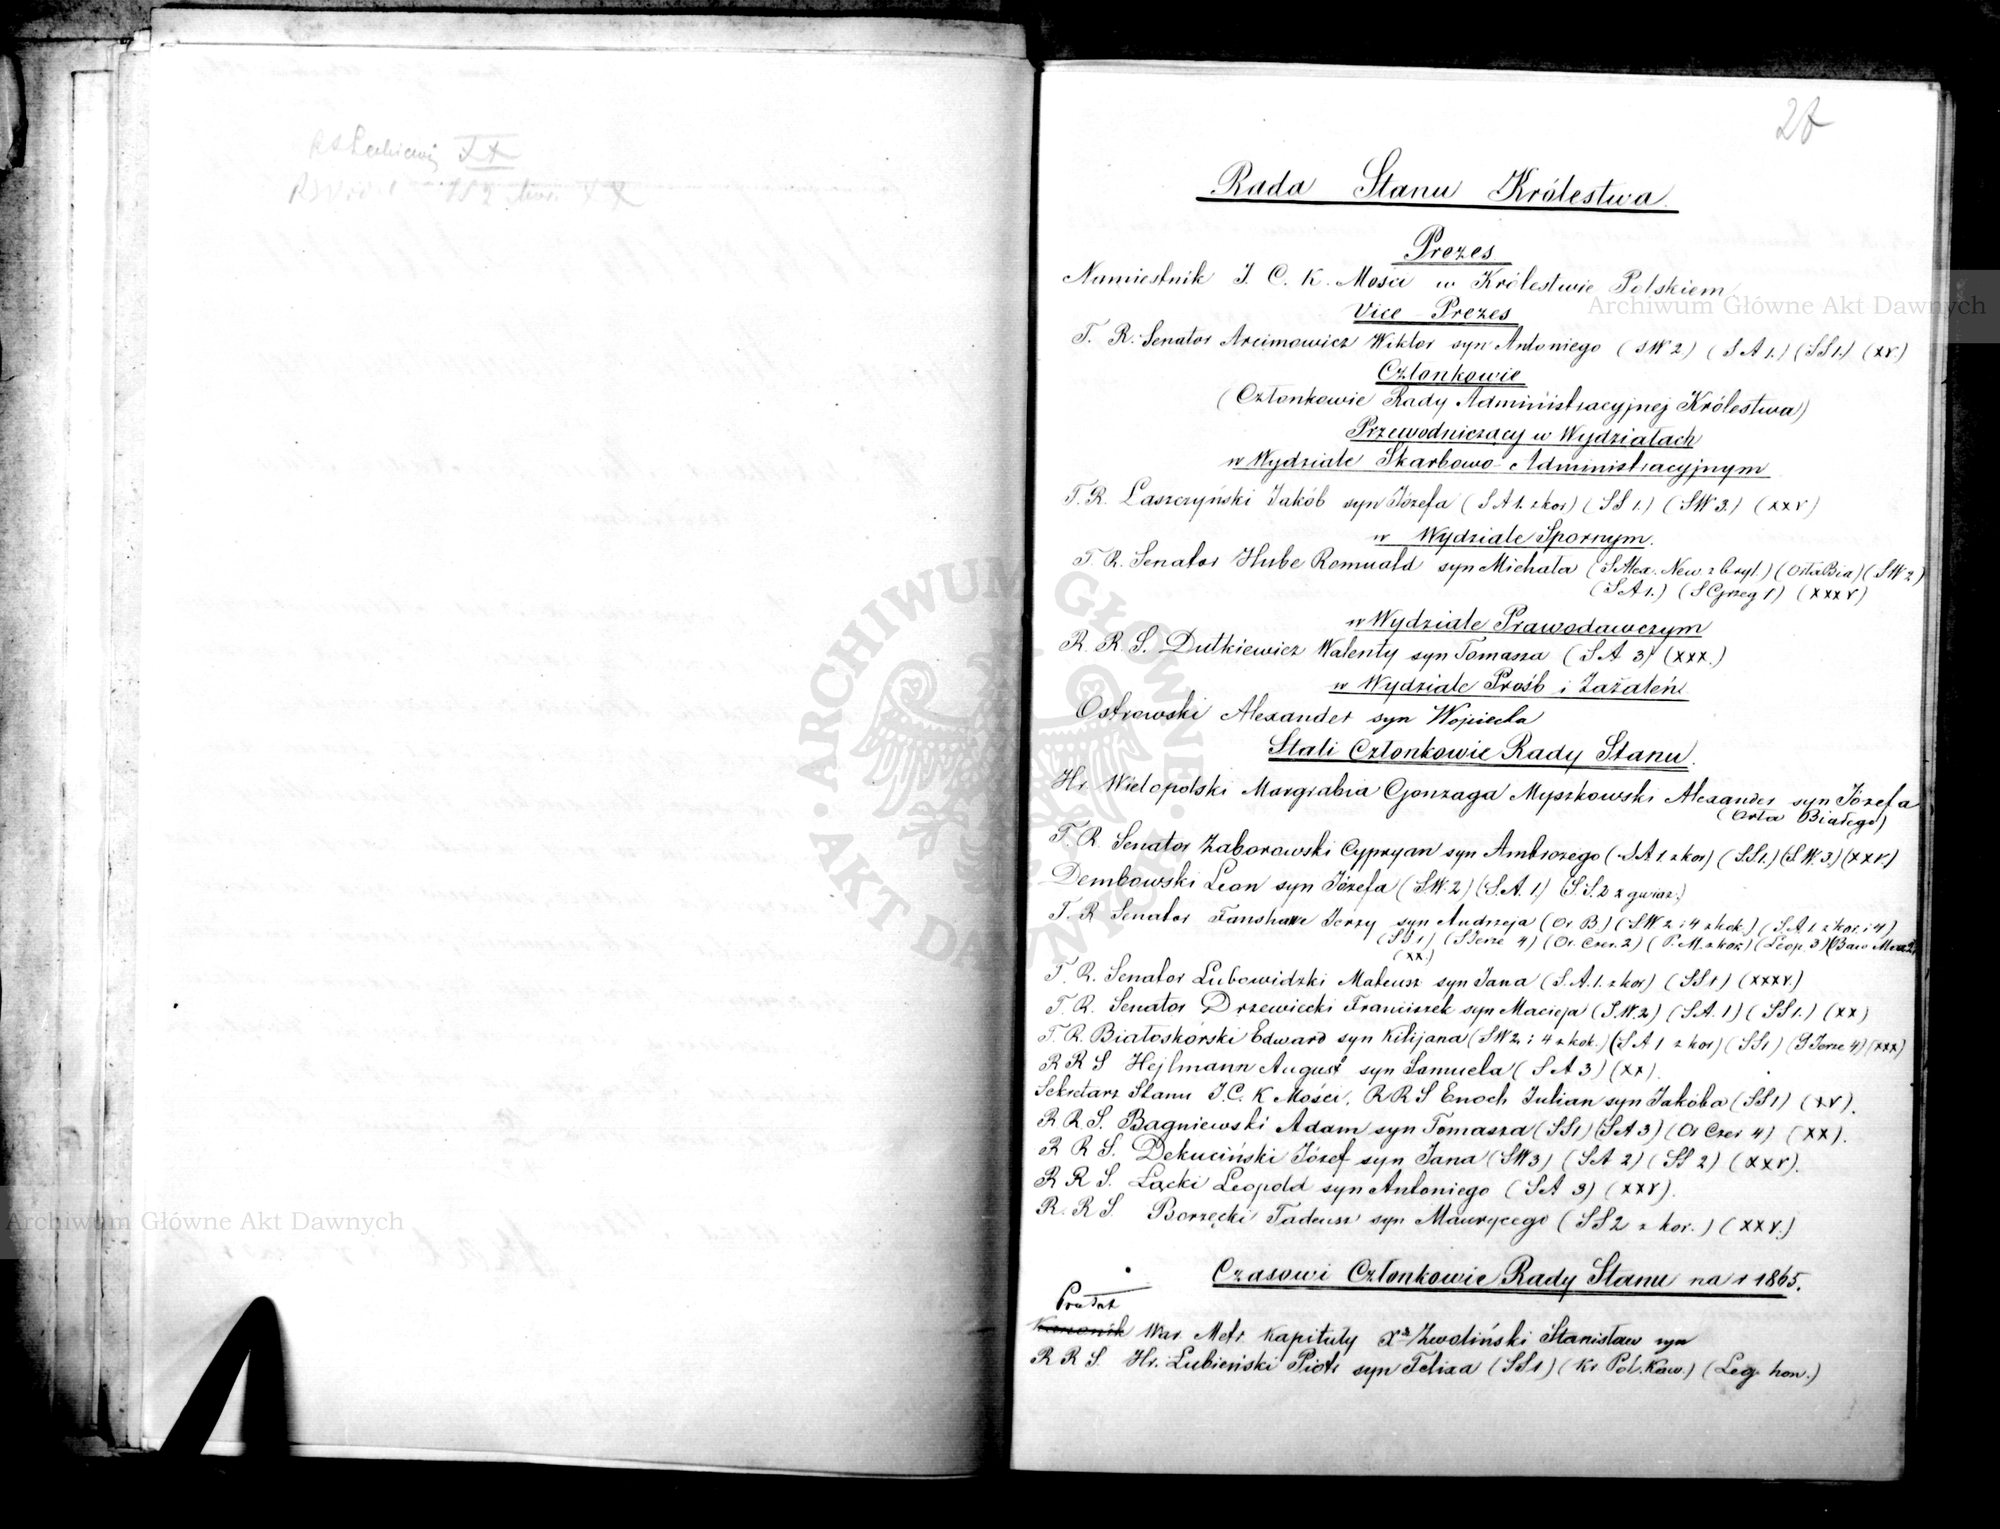 XX
XX
28
Rada Stanu Królestwa.
Prezes
Namiestnik J. C. K. Mości w Królestwie Polskiem
Archiwum Główne Akt Dawnych
Vice-Prezes
T. R. Senator Arcimowicz Wiktor syn Antoniego (SW2) (SA1.) (SS1.) (XV)
Członkowie
(Członkowie Rady Administracyjnej Królestwa)
Przewodniczący w Wydziałach
w Wydziale Skarbowo-Administracyjnym
T. R. Łaszczyński Jakób syn Józefa (SA1. z kor) (SS1.) (SW3.) (XXV)
w Wydziale Spornym.
T. R. Senator Hube Romuald syn Michała (S Alex. New. z bryl.) (Orła Bia) (SW2)
(SA1.) (S Grzeg 1) (XXXV)
w Wydziale Prawodawczym
R. R. S. Dutkiewicz Walenty syn Tomasza (SA 3) (XXX.)
w Wydziale Próśb i Zażaleń
Ostrowski Alexander syn Wojciecha
Stali Członkowie Rady Stanu.
Hr. Wielopolski Margrabia Gonzaga Myszkowski Alexander syn Józefa
(Orła Białego)
T. R. Senator Zaborowski Cypryan syn Ambrożego (SA1. z kor) (SS1.) (SW.3.) (XXV)
Dembowski Leon syn Józefa (SW.2) (S.A.1) (S.S.2 z gwiaz.)
T. R. Senator Fanshawe Jerzy syn Andrzeja (Or B.) (SW2 i 4 z kok.) (S.A.1. z kor. i 4)
(SS1) (S Jerze 4) (Or. Czer. 2) (P. M. z kor) (Leop. 3) (Baw
(XX.)
T. R. Senator Lubowidzki Mateusz syn Jana (S.A.1. z kor) (SS1) (XXXV.)
T. R. Senator Drzewiecki Franciszek syn Macieja (S.W.2) (SA.1) (SS1.) (XX)
T. R. Białoskórski Edward syn Kilijana (SW2 i 4 z kok.) (SA1 z kor) (SS1) (S Jerze 4) (XXX)
R R S Hejlmann August syn Samuela (SA3) (XX).
Sekretarz Stanu J. C. K Mości, R R S Enoch Julian syn Jakóba (SS1) (XV).
R R. S. Bagniewski Adam syn Tomasza (SS1) (SA3) (Or Czer 4) (XX).
R R S. Dekuciński Józef syn Jana (SW3) (SA2) (SS2) (XXV).
R R S. Łącki Leopold syn Antoniego (SA 3) (XXV).
R. R S. Borzęcki Tadeusz syn Maurycego (SS2 z kor.) (XXV.)
Archiwum Główne Akt Dawnych
Czasowi Członkowie Rady Stanu na r 1865.
Prałat
Kanonik War. Metr. Kapituły Xdz Zwoliński Stanisław syn
R R S. Hr. Łubieński Piotr syn Felixa (SS1) (Kr. Pol. Kaw.) (Leg. hon.)
ARCHIWUM GŁÓWNE AKT DAWNYCH